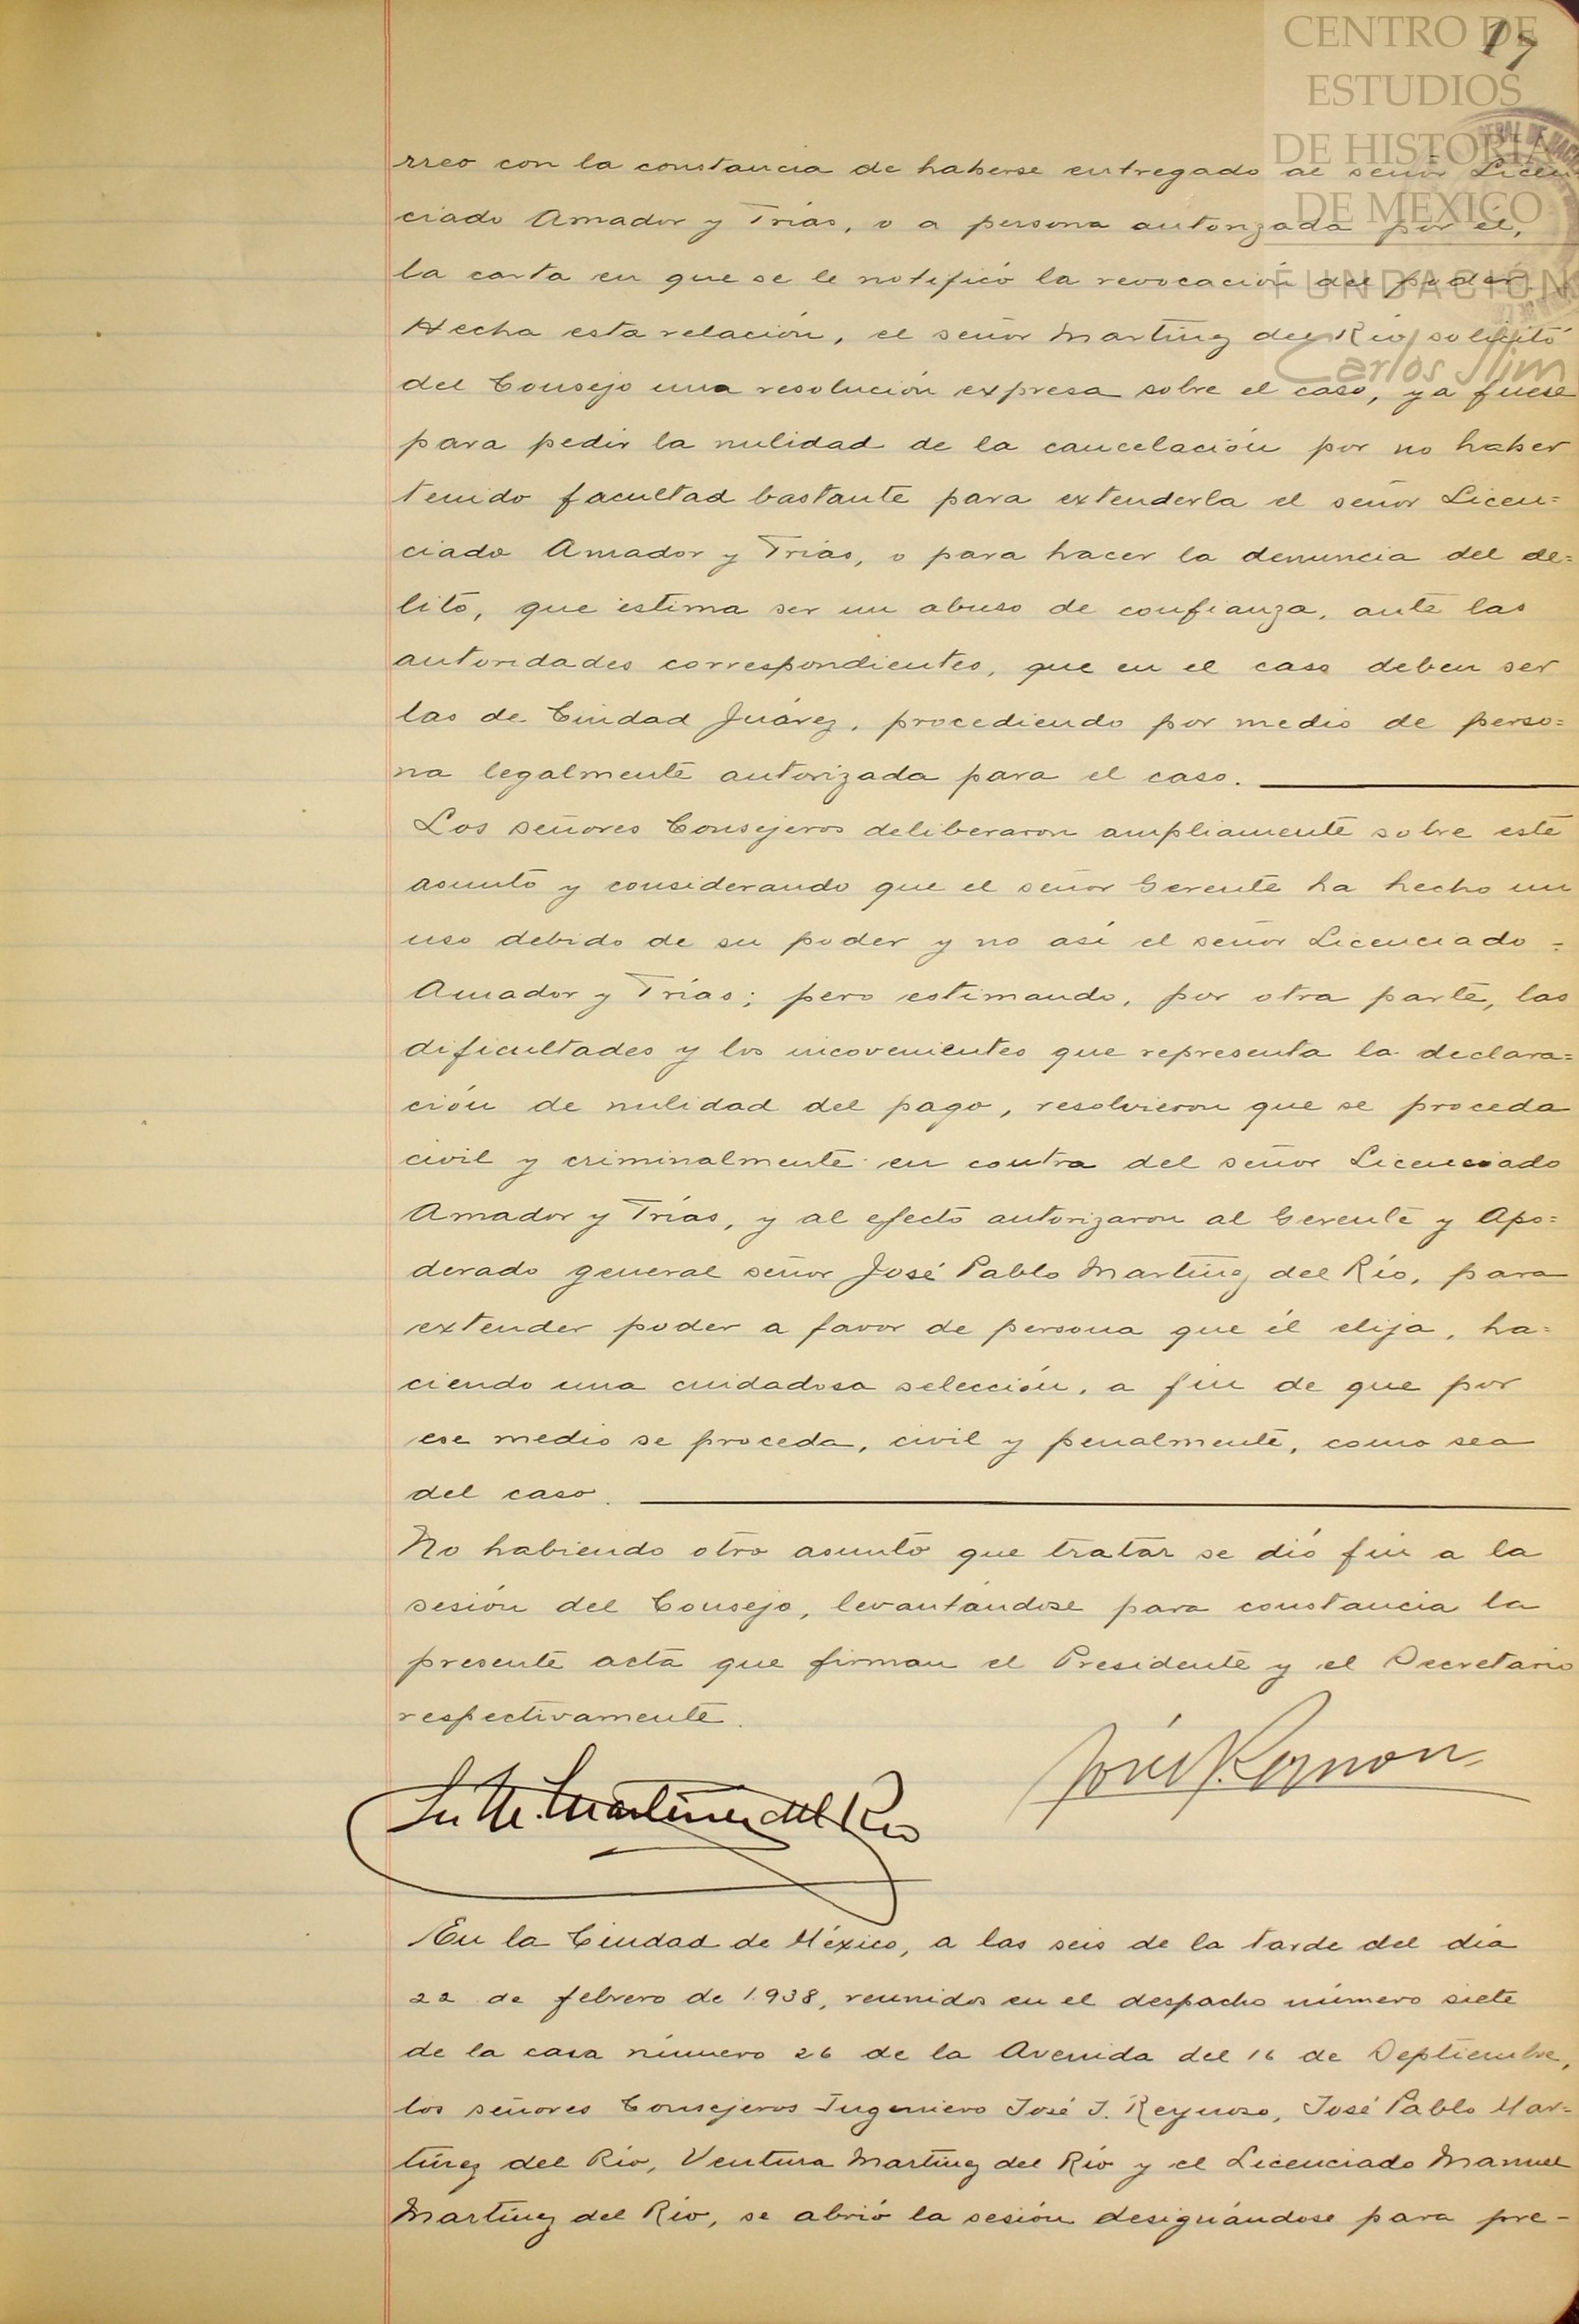 CENTRO DE
ESTUDIOS
DE HISTORIA
DE MEXICO
FUNDACIÓN
Carlos Slim
17
rreo con la constancia de haberse entregado al señor Licen
ciado Amador y Trías, o a persona autorizada por él,
la carta en que se le notificó la revocación del poder.
Hecha esta relación, el señor Martínez del Río solicitó
del Consejo una resolución expresa sobre el caso, ya fuese
para pedir la nulidad de la cancelación por no haber
tenido facultad bastante para extenderla el señor Licen=
ciado Amador y Trías, o para hacer la denuncia del de=
lito, que estima ser un abuso de confianza, ante las
autoridades correspondientes, que en el caso deben ser
las de Ciudad Juárez, procediendo por medio de perso=
na legalmente autorizada para el caso.
Los señores Consejeros deliberaron ampliamente sobre este
asunto y considerando que el señor Gerente ha hecho un
uso debido de su poder y no así el señor Licenciado =
Amador y Trías; pero estimando, por otra parte, las
dificultades y los incovenientes que representa la declara=
ción de nulidad del pago, resolvieron que se proceda
civil y criminalmente en contra del señor Licenciado
Amador y Trías, y al efecto autorizaron al Gerente y Apo=
derado general señor José Pablo Martínez del Río, para
extender poder a favor de persona que él elija, ha=
ciendo una cuidadosa selección, a fin de que por
ese medio se proceda, civil y penalmente, como sea
del caso.
No habiendo otro asunto que tratar se dió fin a la
sesión del Consejo, levantándose para constancia la
presente acta que firman el Presidente y el Secretario
respectivamente.
Martínez del Río
En la Ciudad de México, a las seis de la tarde del día
22 de febrero de 1938, reunidos en el despacho número siete
de la casa número 26 de la Avenida del 16 de Septiembre,
los señores Consejeros Ingeniero José J. Reynoso, José Pablo Mar=
tínez del Río, Ventura Martínez del Río y el Licenciado Manuel
Martínez del Río, se abrió la sesión designándose para pre-